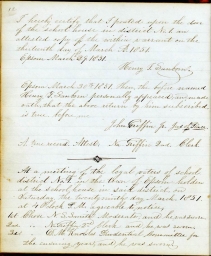 I hereby certify that I posted upon the door
of the school house in district No. 1 an
attested copy of the within warrant on the
thirteenth day of March A.D. 1851.
Epsom March 29 1851.
Henry F. Sanborn
Epsom March 29th 1851. Then the before named
Henry F. Sanborn personally appeared and made
oath, that the above return by him subscribed
is true. before me
John Griffin Jr Jus. of Peace
A true record. Attest. N. Griffin Dist. Clerk
At a meeting of the legal voters of school
district No. 1 in the town of Epsom holden
at the school house in said district on
Saturday the twenty-ninth day March 1851
at o'clock P.M. agreeably to notice
1st Chose Moderator and he was sworn
2nd " N. Griffin Clerk and he was sworn
3rd " Prudential Committee for
the ensuing year and he was sworn